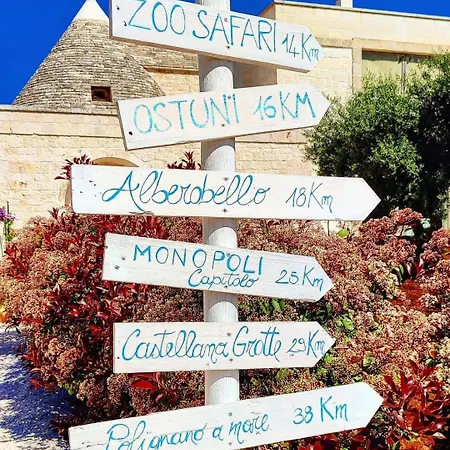 ZOO SAFARI 14 Km
OSTUNI 16 KM
Alberobello 18 Km
MONOPOLI
Capitolo 25 Km
Castellana Grotte 29 Km
Polignano a mare 38 Km